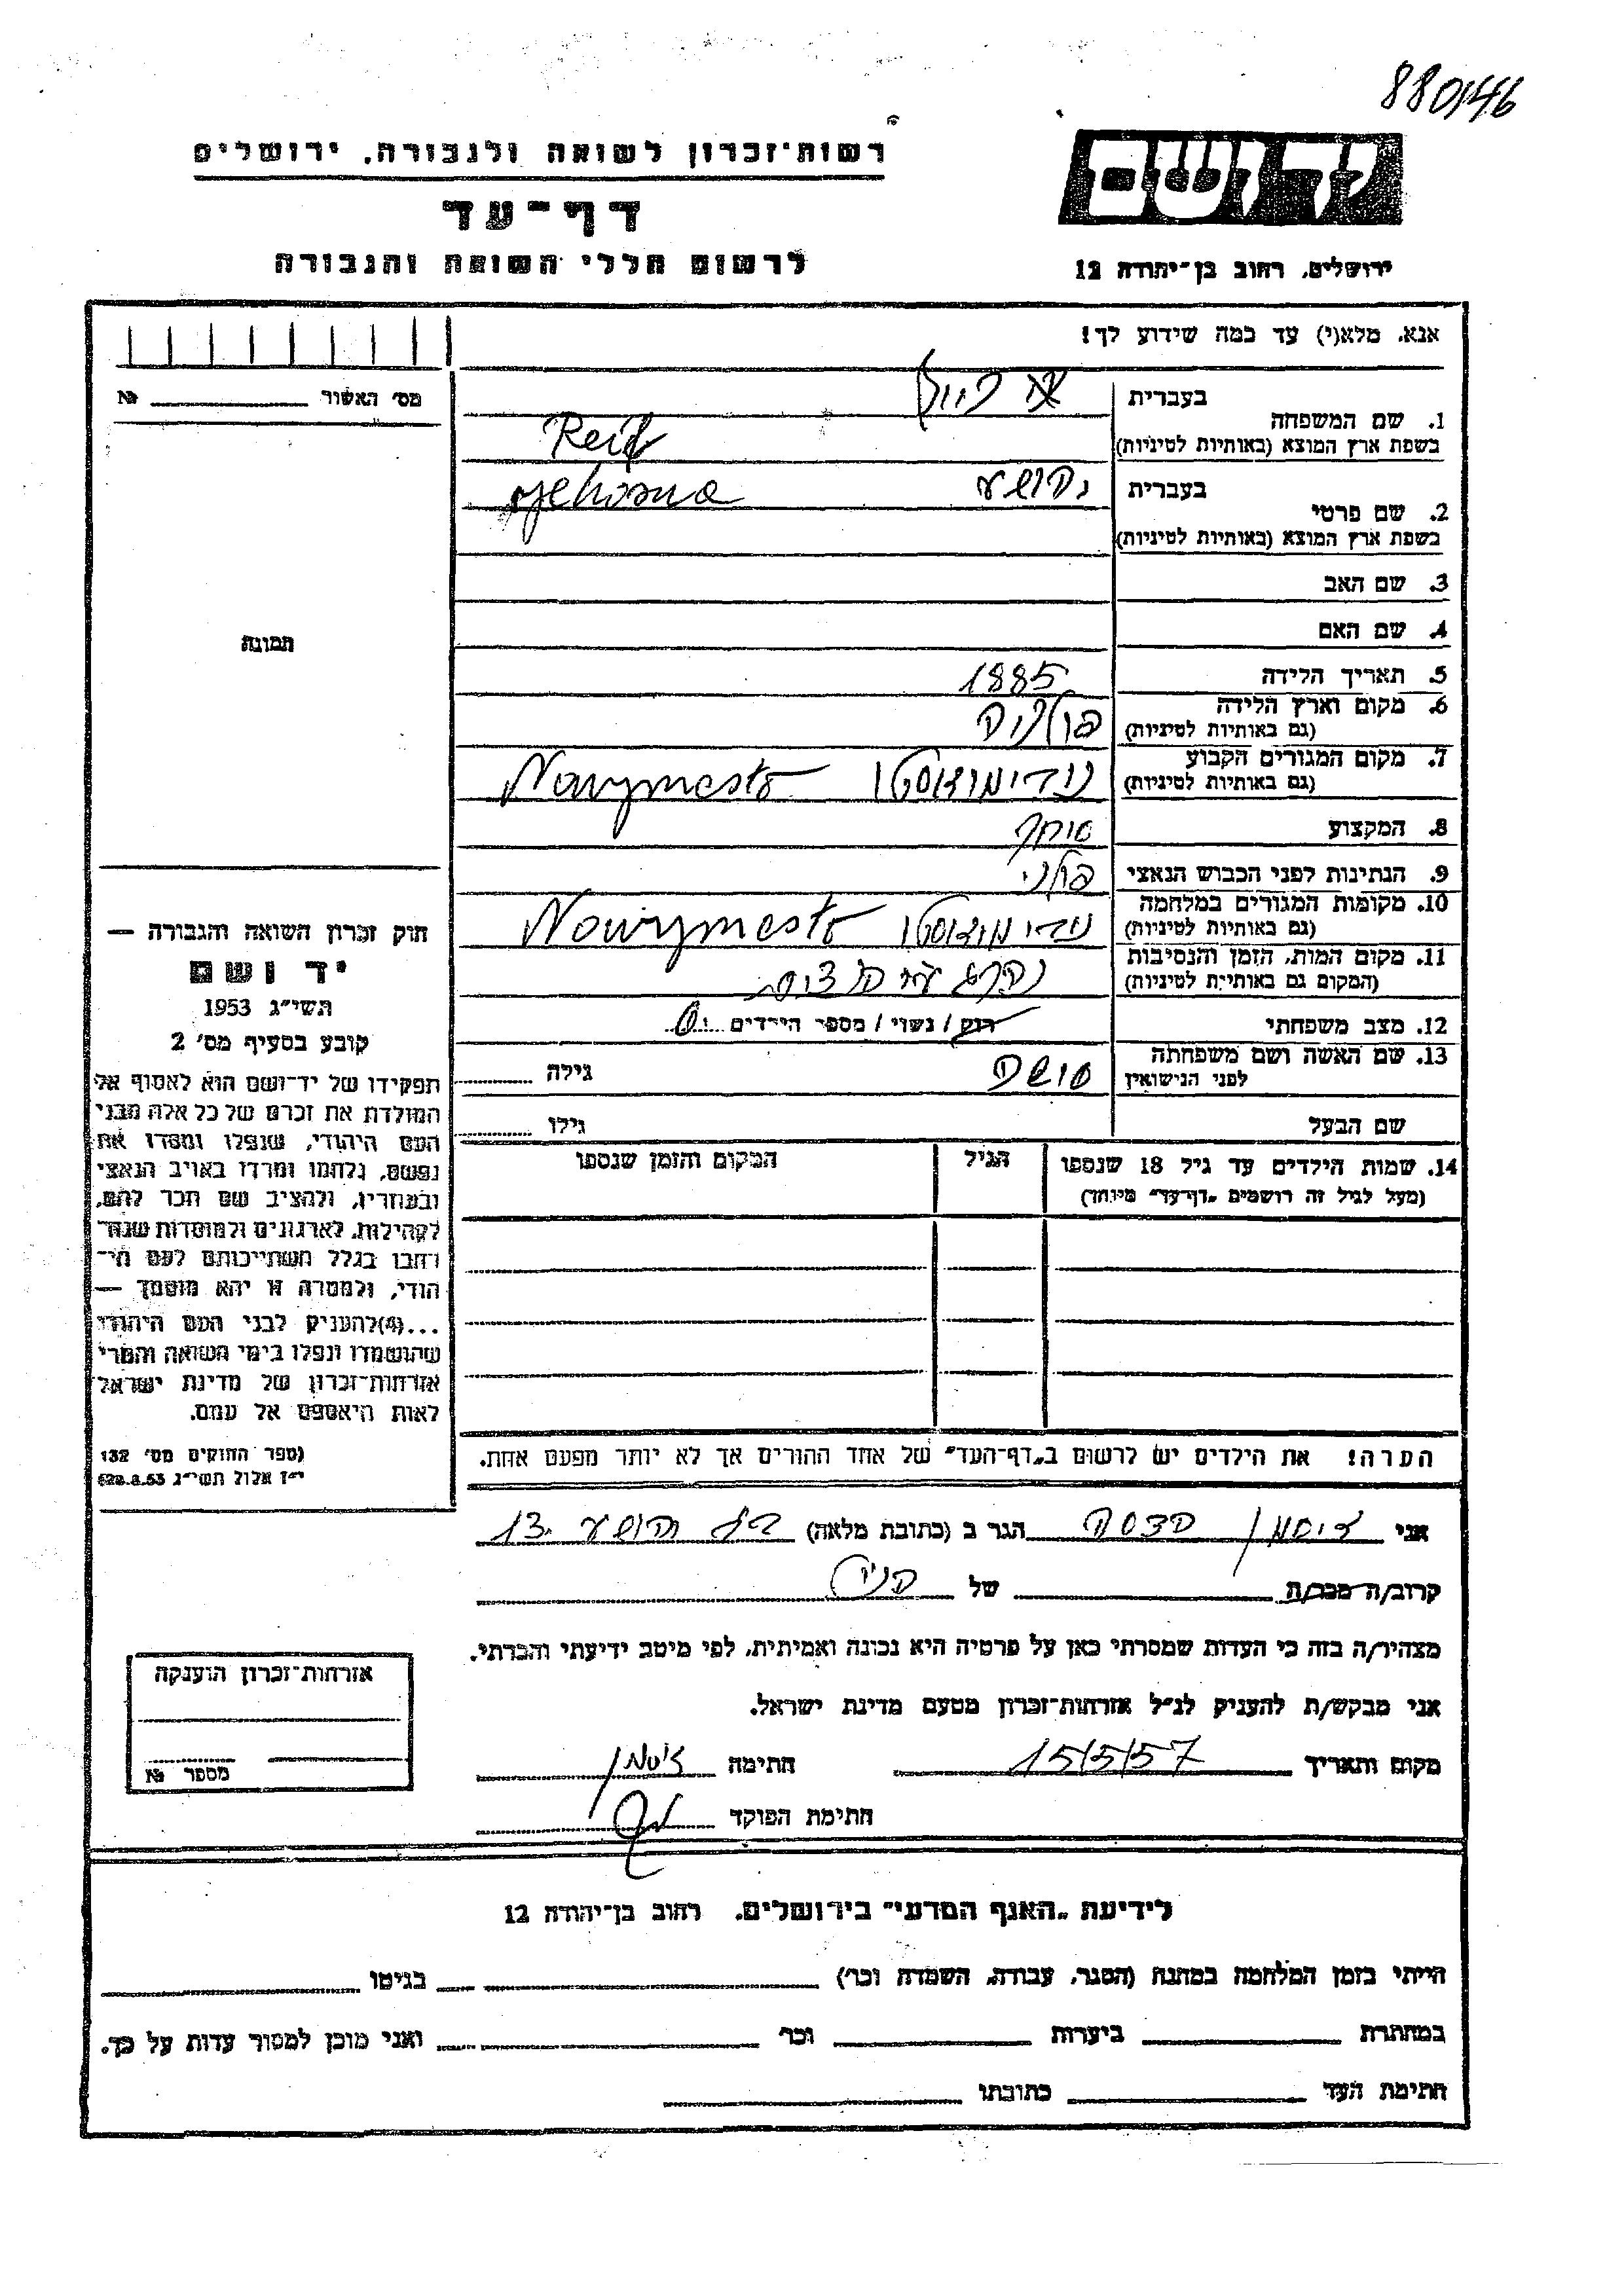 880/46
רשות־זכרון לשואה ולגבורה, ירושלים
יד ושם
דף־עד
לרשום חללי השואה והגבורה
ירושלים, רחוב בן־יהודה 12
אנא, מלא(י) עד כמה שידוע לך!
מס' האשור №
תמונה
1. שם המשפחה
בעברית
בשפת ארץ המוצא (באותיות לטיניות) Reif
2. שם פרטי
בעברית יהושע Jehosua
בשפת ארץ המוצא (באותיות לטיניות)
3. שם האב
4. שם האם
5. תאריך הלידה 1885
6. מקום וארץ הלידה פולניה
(גם באותיות לטיניות)
7. מקום המגורים הקבוע Nowymesto
(גם באותיות לטיניות)
8. המקצוע סוחר
9. הנתינות לפני הכבוש הנאצי פולני
10. מקומות המגורים במלחמה Nowymesto
(גם באותיות לטיניות)
11. מקום המות, הזמן והנסיבות
(המקום גם באותיות לטיניות)
12. מצב משפחתי רוק / נשוי / מספר הילדים
13. שם האשה ושם משפחתה גילה
לפני הנישואין
שם הבעל גילו
14. שמות הילדים עד גיל 18 שנספו הגיל המקום והזמן שנספו
(מעל לגיל זה רושמים „דף־עד" מיוחד)
הערה! את הילדים יש לרשום ב„דף־העד" של אחד ההורים אך לא יותר מפעם אחת.
חוק זכרון השואה והגבורה —
יד ושם
תשי״ג 1953
קובע בסעיף מס' 2
תפקידו של יד־ושם הוא לאסוף אל
המולדת את זכרם של כל אלה מבני
העם היהודי, שנפלו ומסרו את
נפשם, נלחמו ומרדו באויב הנאצי
ובעוזריו, ולהציב שם וזכר להם,
לקהילות, לארגונים ולמוסדות שנח־
רבו בגלל השתייכותם לעם הי־
הודי, ולמטרה זו יהא מוסמך —
...(4) להעניק לבני העם היהודי
שהושמדו ונפלו בימי השואה והמרי
אזרחות־זכרון של מדינת ישראל
לאות היאספם אל עמם.
(ספר החוקים מס' 132
י״ז אלול תשי״ג 28.8.53)
אני הגר ב (כתובת מלאה) 13
קרוב/ה מכר/ה של
מצהיר/ה בזה כי העדות שמסרתי כאן על פרטיה היא נכונה ואמיתית, לפי מיטב ידיעתי והכרתי.
אני מבקש/ת להעניק לנ״ל אזרחות־זכרון מטעם מדינת ישראל.
מקום ותאריך 15/5/57 חתימה
חתימת הפוקד
אזרחות־זכרון הוענקה
מספר №
לידיעת „האגף המדעי" בירושלים, רחוב בן־יהודה 12
הייתי בזמן המלחמה במחנה (הסגר, עבודה, השמדה וכו') בגיטו
במחתרת ביערות וכו' ואני מוכן למסור עדות על כך.
חתימת העד כתובתו